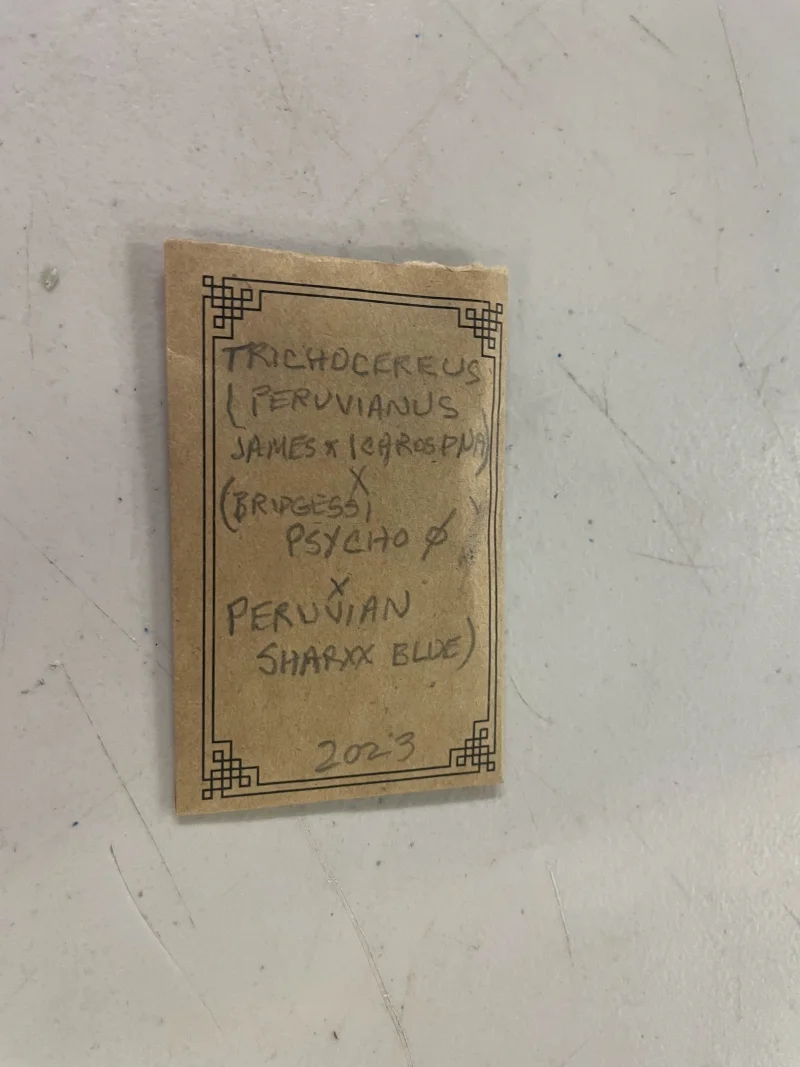 TRICHOCEREUS
(PERUVIANUS
JAMES X ICAROS DNA)
X
(BRIDGESSI
PSYCHO Ø
X
PERUVIAN
SHARXX BLUE)
2023